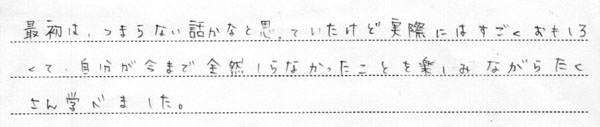 最初は、つまらない話かなと思っていたけど実際にはすごくおもしろ
くて、自分が今まで全然しらなかったことを楽しみながらたく
さん学べました。